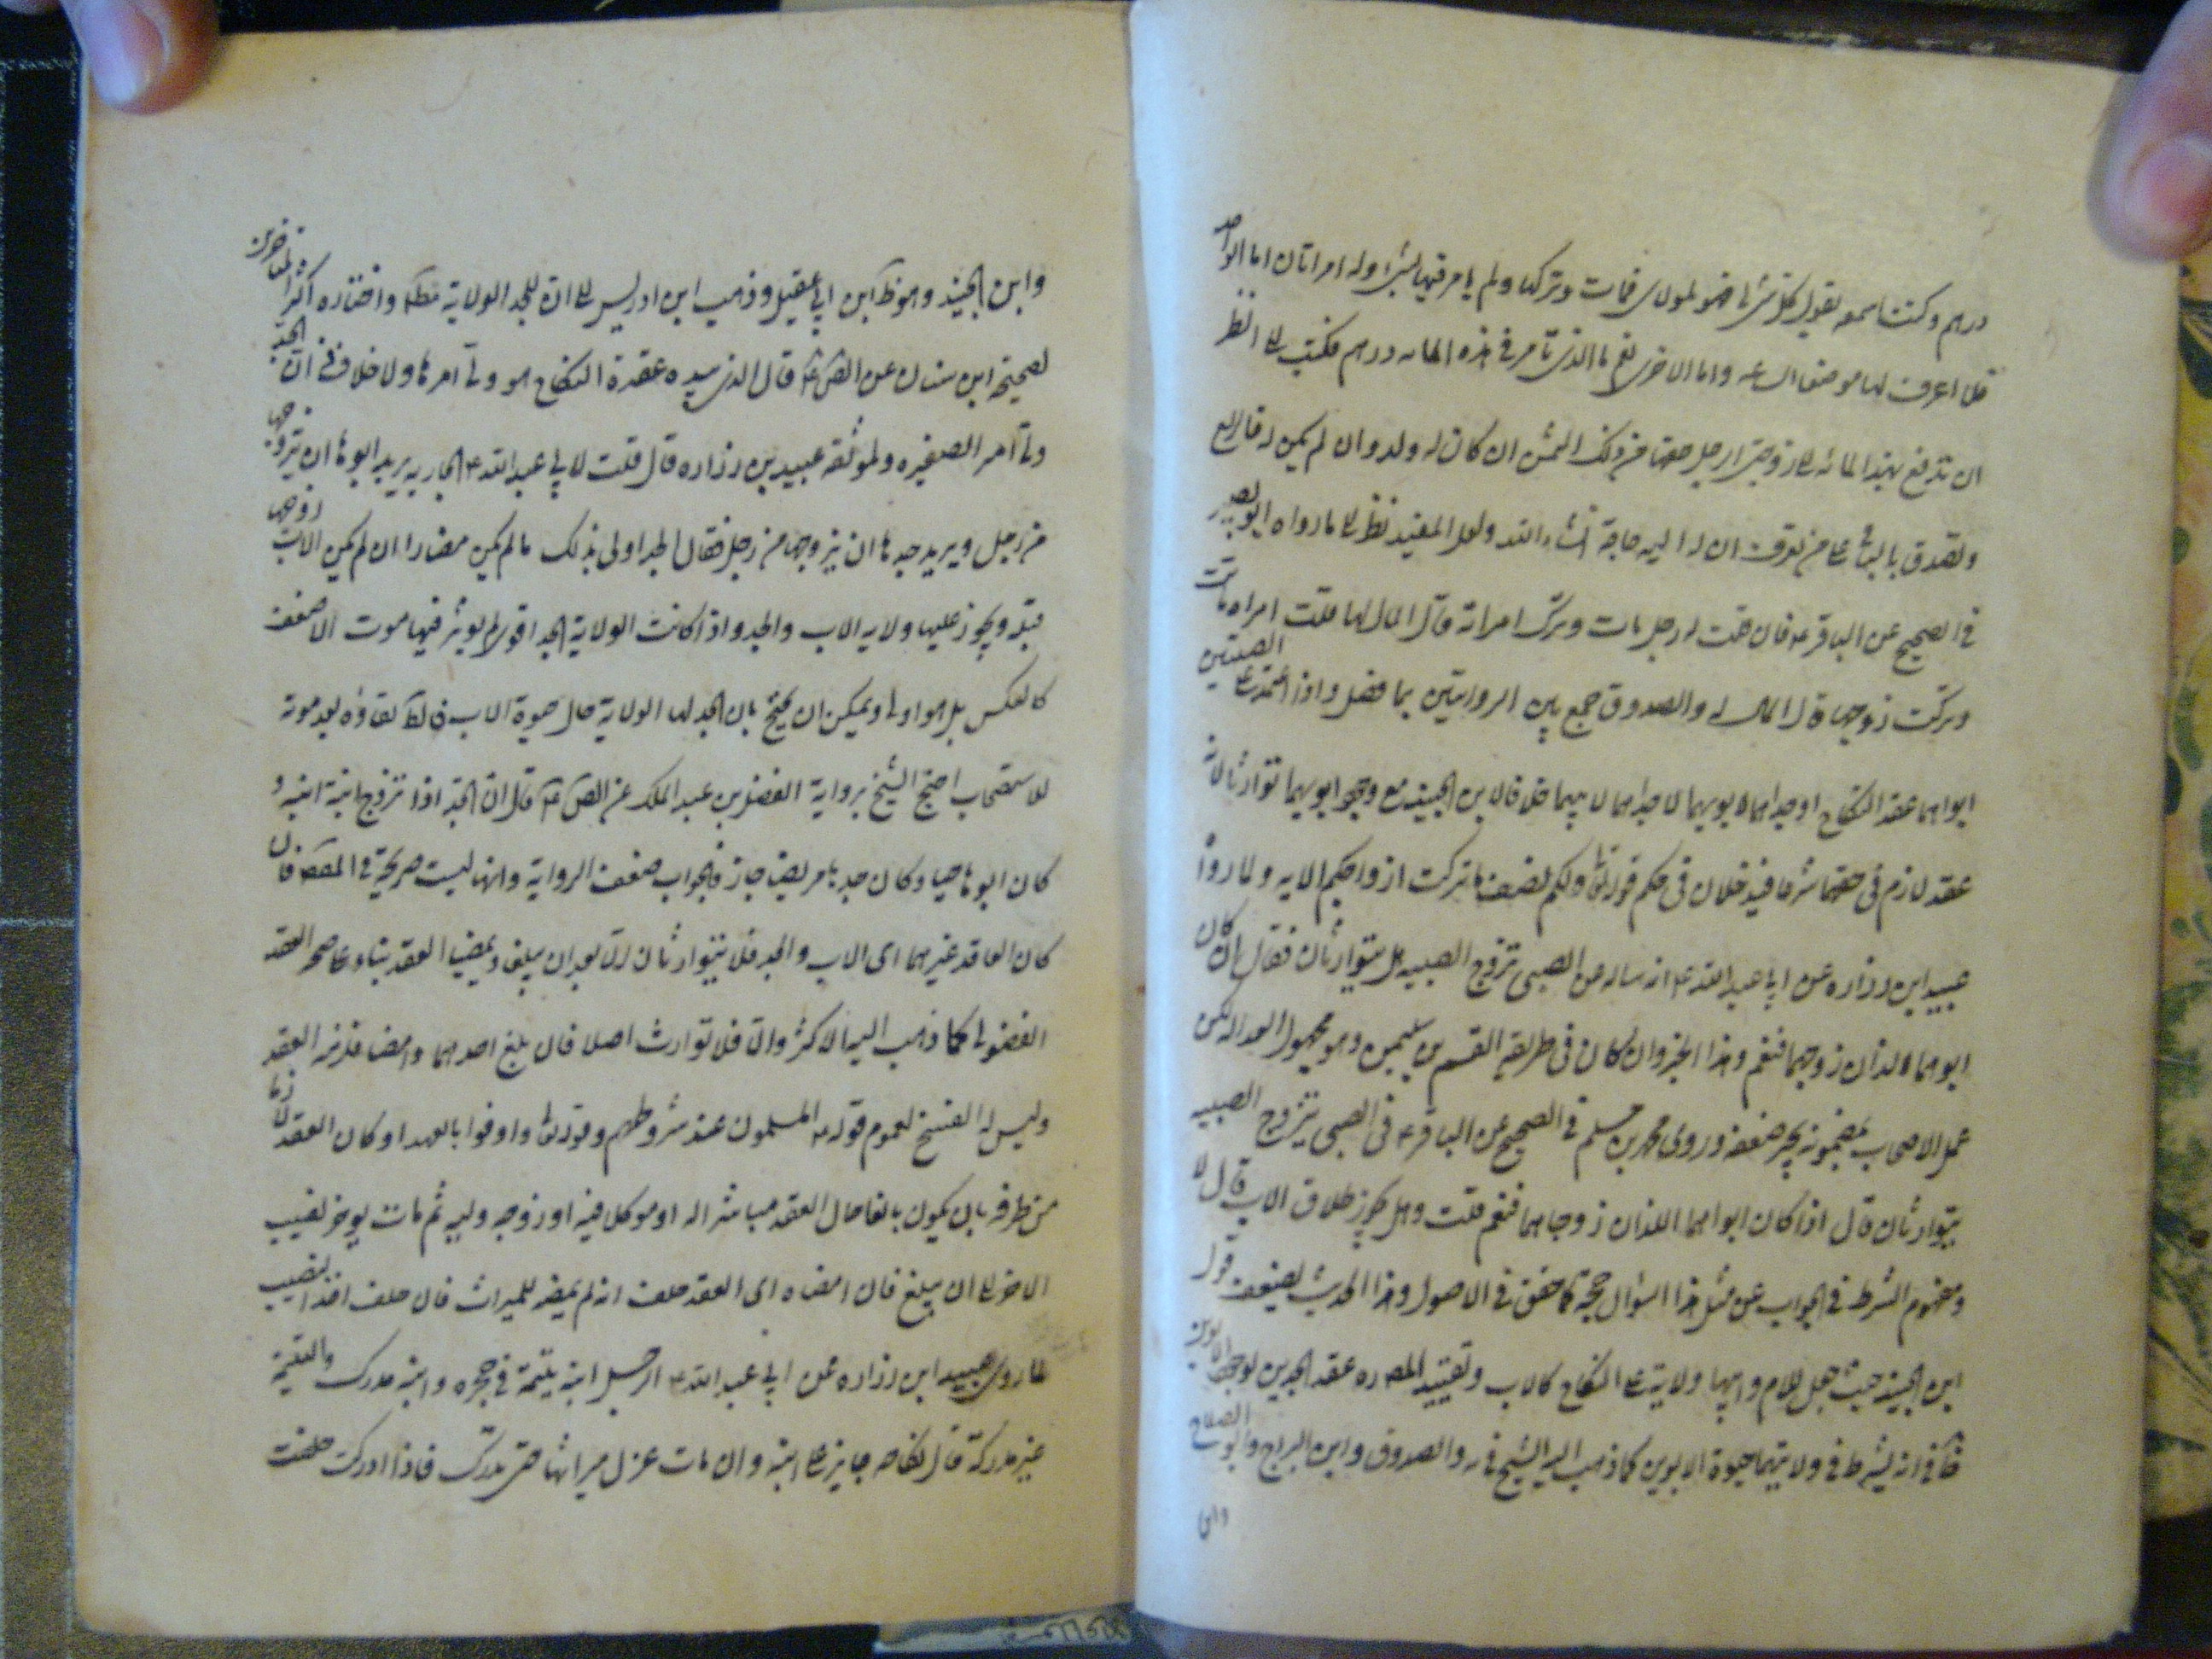 درهم وكنت اسمعه يقول كل شي هو لمولاي فمات وتركها ولم يامر فيها بشي وله امراتان اما الواحدة
فلا اعرف لها موضعا الساعه واما الاخرى بقم ما الذى تامر فى هذه المائه درهم فكتب الى انظر
ان تدفع هذه المائه الى زوجتى الرجل وحقهما من ذلك الثمن ان كان له ولد وان لم يكن له فالربع
وتصدق بالباقى على من تعرف ان له اليه حاجة انشاء الله ولعل المفيد نظر الى ما رواه ابو بصير
فى الصحيح عن الباقر ع قال قلت له رجل مات وترك امراته قال المال لها قلت امراه ماتت
وتركت زوجها قال المال له والصدوق جمع بين الروايتين بما فصل واذا عقد على الصبيتين
ابواهما عقد النكاح او جداهما لابويهما لا جداهما لاميهما خلافا لابن الجنيد مع وجود ابويهما توارثا لانه
عقد لازم فى حقهما شرعا فيدخلان فى حكم قوله تعالى ولكم نصف ما تركت ازواجكم الايه ولما رواه
عبيد ابن زراره عن ابى عبد الله ع انه ساله عن الصبى تزوج الصبيه هل يتوارثان فقال ان كان
ابوهما اللذان زوجهما فنعم وهذا الخبر وان كان فى طريقه القسم بن سليمن وهو مجهول العداله لكن
عمل الاصحاب بمضمونه يجبر ضعفه وروى محمد بن مسلم فى الصحيح عن الباقر ع فى الصبى يتزوج الصبيه
يتوارثان قال اذا كان ابواهما اللذان زوجاهما فنعم قلت وهل يجوز طلاق الاب قال لا
ومفهوم الشرط فى الجواب عن مثل هذا السؤال حجة كما حقق فى الاصول وهذا الحديث يضعف قول
ابن الجنيد حيث جعل للام وابيها ولاية على النكاح كالاب وتقييد المص ره عقد الجدين بوجود الابوين
فى انه يشترط فى ولايتهما حيوة الابوين كما ذهب اليه الشيخ فى يه والصدوق وابن البراج وابو الصلاح
وابن
وابن الجنيد وهو ظ كلام ابن ابى عقيل وذهب ابن ادريس الى ان للجد الولاية مطلقا واختاره اكثر المتاخرين
لصحيحة ابن سنان عن الص ع قال الذى بيده عقدة النكاح هو ولى امرها ولا خلاف فى ان الجد
ولى امر الصغيره ولموثقه عبيد بن زراره قال قلت لابى عبد الله ع الجاريه يريد ابوها ان يزوجها
من رجل ويريد جدها ان يزوجها من رجل فقال الجد اولى بذلك ما لم يكن مضارا ان لم يكن الاب زوجها
قبله ويجوز عليها ولايه الاب والجد واذا كانت الولاية الجد اقوى لم يوثر فيها موت الاضعف
كالعكس بل هو اولى ويمكن ان يحتج بان الجد لها الولاية حال حيوة الاب فالظ بقاؤه بعد موته
للاستصحاب احتج الشيخ برواية الفضل بن عبد الملك عن الص ع قال ان الجد اذا تزوج ابنة ابنه و
كان ابوها حيا وكان جدها مرضيا جاز والجواب ضعف الرواية وانها ليست صريحة فى المقصد فان
كان العاقد غيرهما اى الاب والجد فلا يتوارثان الا بعد ان يبلغا ويمضيا العقد بناء على صحه العقد
الفضولى كما ذهب اليه الاكثر والا فلا توارث اصلا فان بلغ احدهما وامضا فلزمه العقد
وليس له الفسخ لعموم قوله ع المسلمون عند شروطهم وقوله تعالى واوفوا بالعهد او كان العقد لازما
من طرفه بان يكون بالغا حال العقد مباشرا له او موكلا فيه او زوجه وليه ثم مات يوخر نصيب
الاخر الى ان يبلغ فان امضاه اى العقد حلف انه لم يمضه للميراث فان حلف اخذ النصيب
لما روى عبيد ابن زراره عن ابى عبد الله ع الرجل ابنه يتيمة فى حجره وابنه مدرك واليتيمة
غير مدركة قال نكاحه جايز على ابنه وان مات عزل ميراثها حتى تدرك فاذا ادركت حلفت